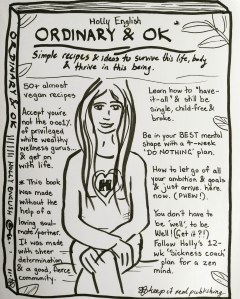 Holly English
ORDINARY & OK
Simple recipes & ideas to survive this life, body
& thrive in this being.
50+ almost
vegan recipes
Accept you're
not the 0001%
of privileged
white wealthy
wellness gurus...
& get on
with life.
* This book
was made
without the
help of a
loving soul-
mate/partner.
It was made
with sheer
determination
& a good, fierce
community.
Learn how to "have
-it-all" & still be
single, child-free &
broke.
Be in your BEST mental
shape with a 4-week
'DO NOTHING' plan.
How to let go of all
your ambition & goals
& just arrive. here.
now. (PHEW!).
You don't have to
be 'well', to be
Well! (Get it?!)
Follow Holly's 12-
wk 'Sickness coach'
plan for a zen
mind.
keep it real publishing.
H
ORDINARY & OK
HOLLY ENGLISH